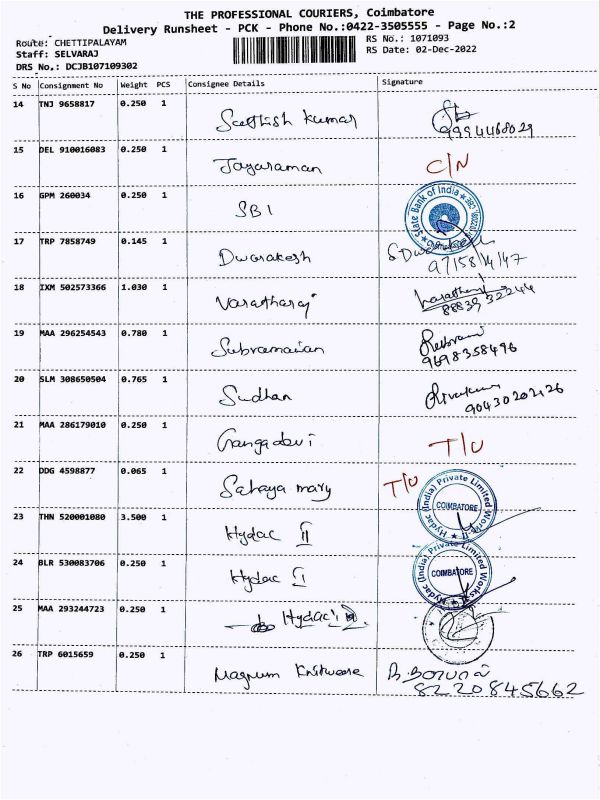 THE PROFESSIONAL COURIERS, Coimbatore
Delivery Runsheet - PCK - Phone No.:0422-3505555 - Page No.:2
Route: CHETTIPALAYAM RS No.: 1071093
Staff: SELVARAJ RS Date: 02-Dec-2022
DRS No.: DCJB107109302
S No Consignment No Weight PCS Consignee Details Signature
14 TNJ 9658817 0.250 1 Sathish Kumar
9994468029
15 DEL 910016083 0.250 1 Jayaraman C/N
16 GPM 260034 0.250 1 SBI State Bank of India
17 TRP 7858749 0.145 1 Dwarakesh
18 IXM 502573366 1.030 1 Varatharaj
19 MAA 296254543 0.780 1 Subramanian
9698358496
20 SLM 308650504 0.765 1 Sudhan
21 MAA 286179010 0.250 1 Gangadevi T/U
22 DDG 4598877 0.065 1 Sahaya mary T/U
23 THN 520001080 3.500 1 Hydac II Hydac (India) Private Limited Works COIMBATORE
24 BLR 530083706 0.250 1 Hydac I Hydac (India) Private Limited Works COIMBATORE
25 MAA 293244723 0.250 1 Hydac
26 TRP 6015659 0.250 1 Magnum Knitweare
8220845662